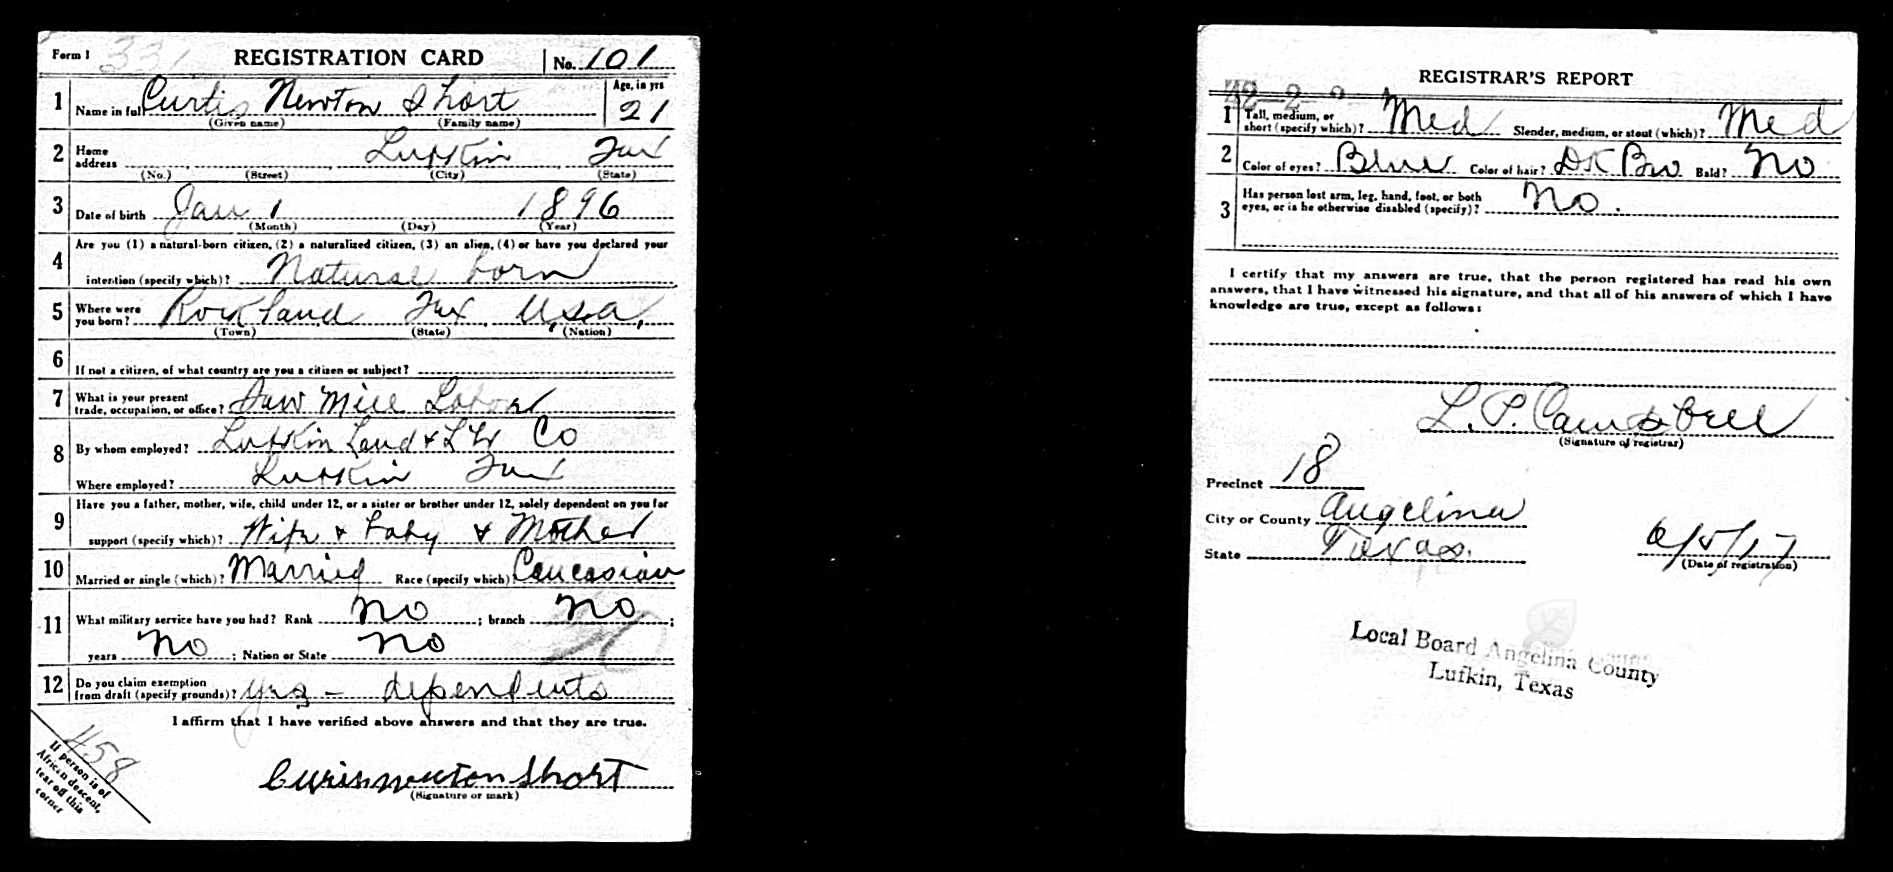 Form 1 331 REGISTRATION CARD No. 101
1 Name in full Curtis Newton Short Age, in yrs 21
(Given name) (Family name)
2 Home address Lufkin Tex
(No.) (Street) (City) (State)
3 Date of birth Jan 1 1896
(Month) (Day) (Year)
4 Are you (1) a natural-born citizen, (2) a naturalized citizen, (3) an alien, (4) or have you declared your
intention (specify which)? Natural born
5 Where were you born? Rockland Tex U.S.A.
(Town) (State) (Nation)
6 If not a citizen, of what country are you a citizen or subject?
7 What is your present trade, occupation, or office? Saw Mill Labor
8 By whom employed? Lufkin Land & Lbr Co
Where employed? Lufkin Tex
9 Have you a father, mother, wife, child under 12, or a sister or brother under 12, solely dependent on you for
support (specify which)? Wife & baby & Mother
10 Married or single (which)? Married Race (specify which) Caucasian
11 What military service have you had? Rank no ; branch no ;
years no ; Nation or State no
12 Do you claim exemption from draft (specify grounds)? yes - dependents
I affirm that I have verified above answers and that they are true.
458
If person is of
African descent,
tear off this
corner
Curtis newton Short
(Signature or mark)
REGISTRAR'S REPORT
1 Tall, medium, or short (specify which)? Med Slender, medium, or stout (which)? Med
2 Color of eyes? Blue Color of hair? DK Bro Bald? No
3 Has person lost arm, leg, hand, foot, or both
eyes, or is he otherwise disabled (specify)? No.
I certify that my answers are true, that the person registered has read his own
answers, that I have witnessed his signature, and that all of his answers of which I have
knowledge are true, except as follows:
L. P. Campbell
(Signature of registrar)
Precinct 18
City or County Angelina
State Texas.
6/5/17
(Date of registration)
Local Board Angelina County
Lufkin, Texas